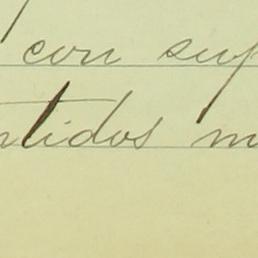 con sup
ntidos m